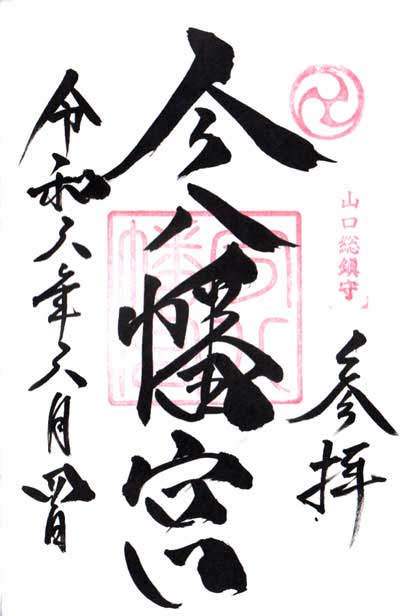 山口総鎮守
参拝
今八幡宮
令和六年六月四日